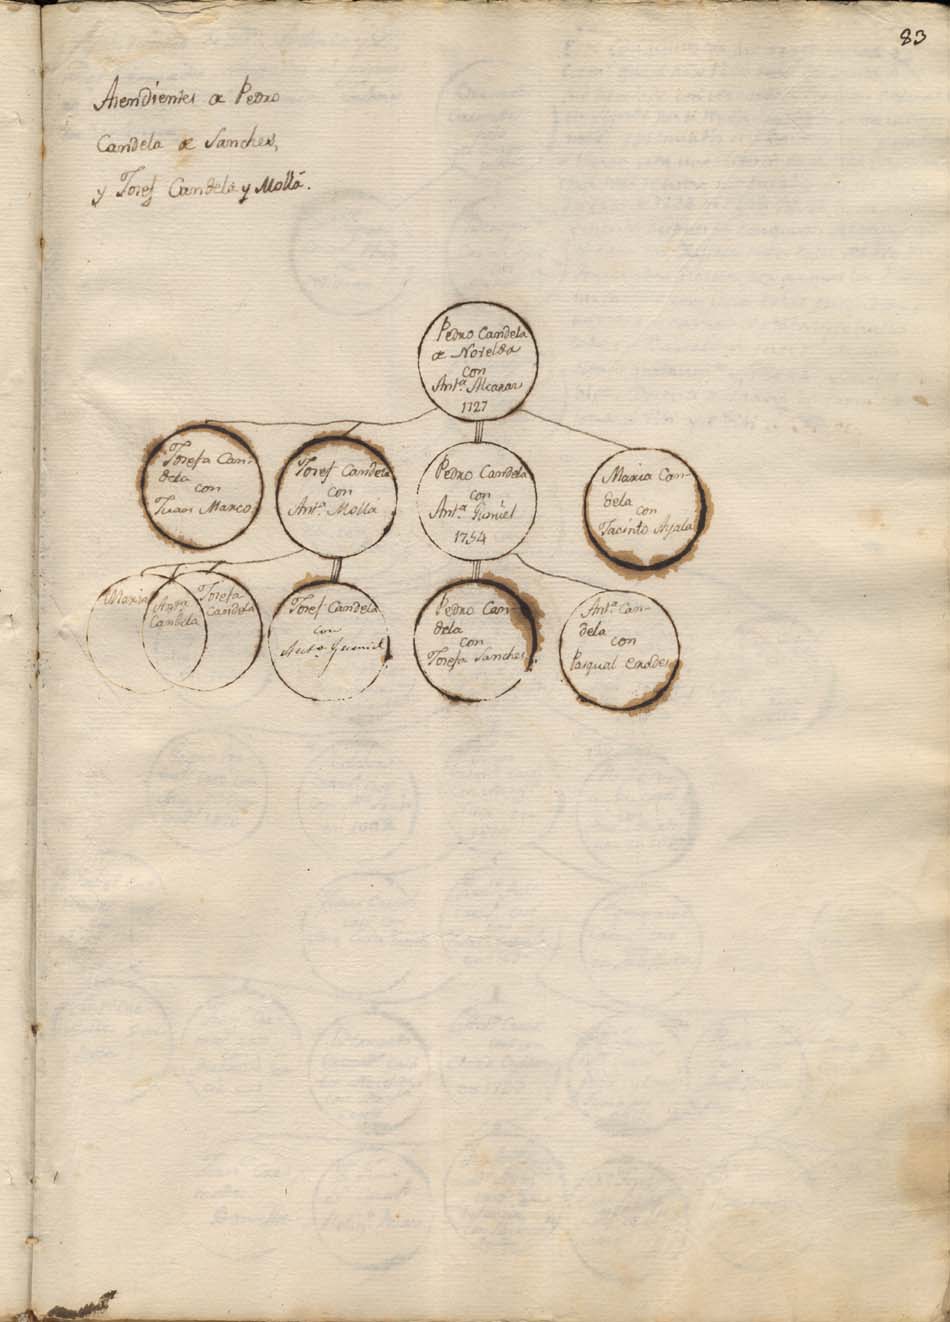 83
Asendientes de Pedro
Candela de Sanches,
y Josef Candela y Mollá.
Pedro Candela
de Novelda
con
Antª. Alcaras
1727
Josefa Can-
dela
con
Juan Marco
Josef Candela
con
Antª. Mollá
Pedro Candela
con
Antª Gumiel
1754
Maria Can-
dela
con
Jacinto Ayala
Maria
Antª
Candela
Josefa
Candela
Josef Candela
con
Antª Gumiel
Pedro Can-
dela
con
Josefa Sanches
Antª. Can-
dela
con
Pasqual